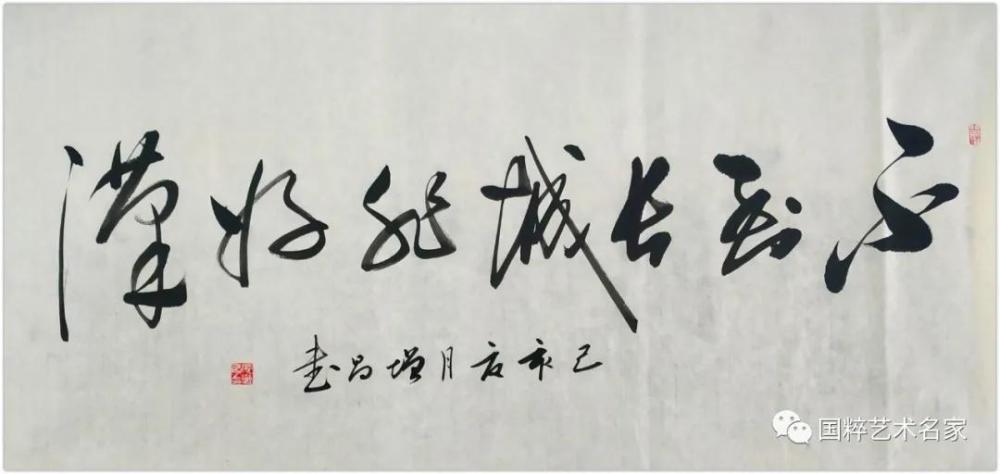 不到长城非好漢
己亥五月增昌书
国粹艺术名家